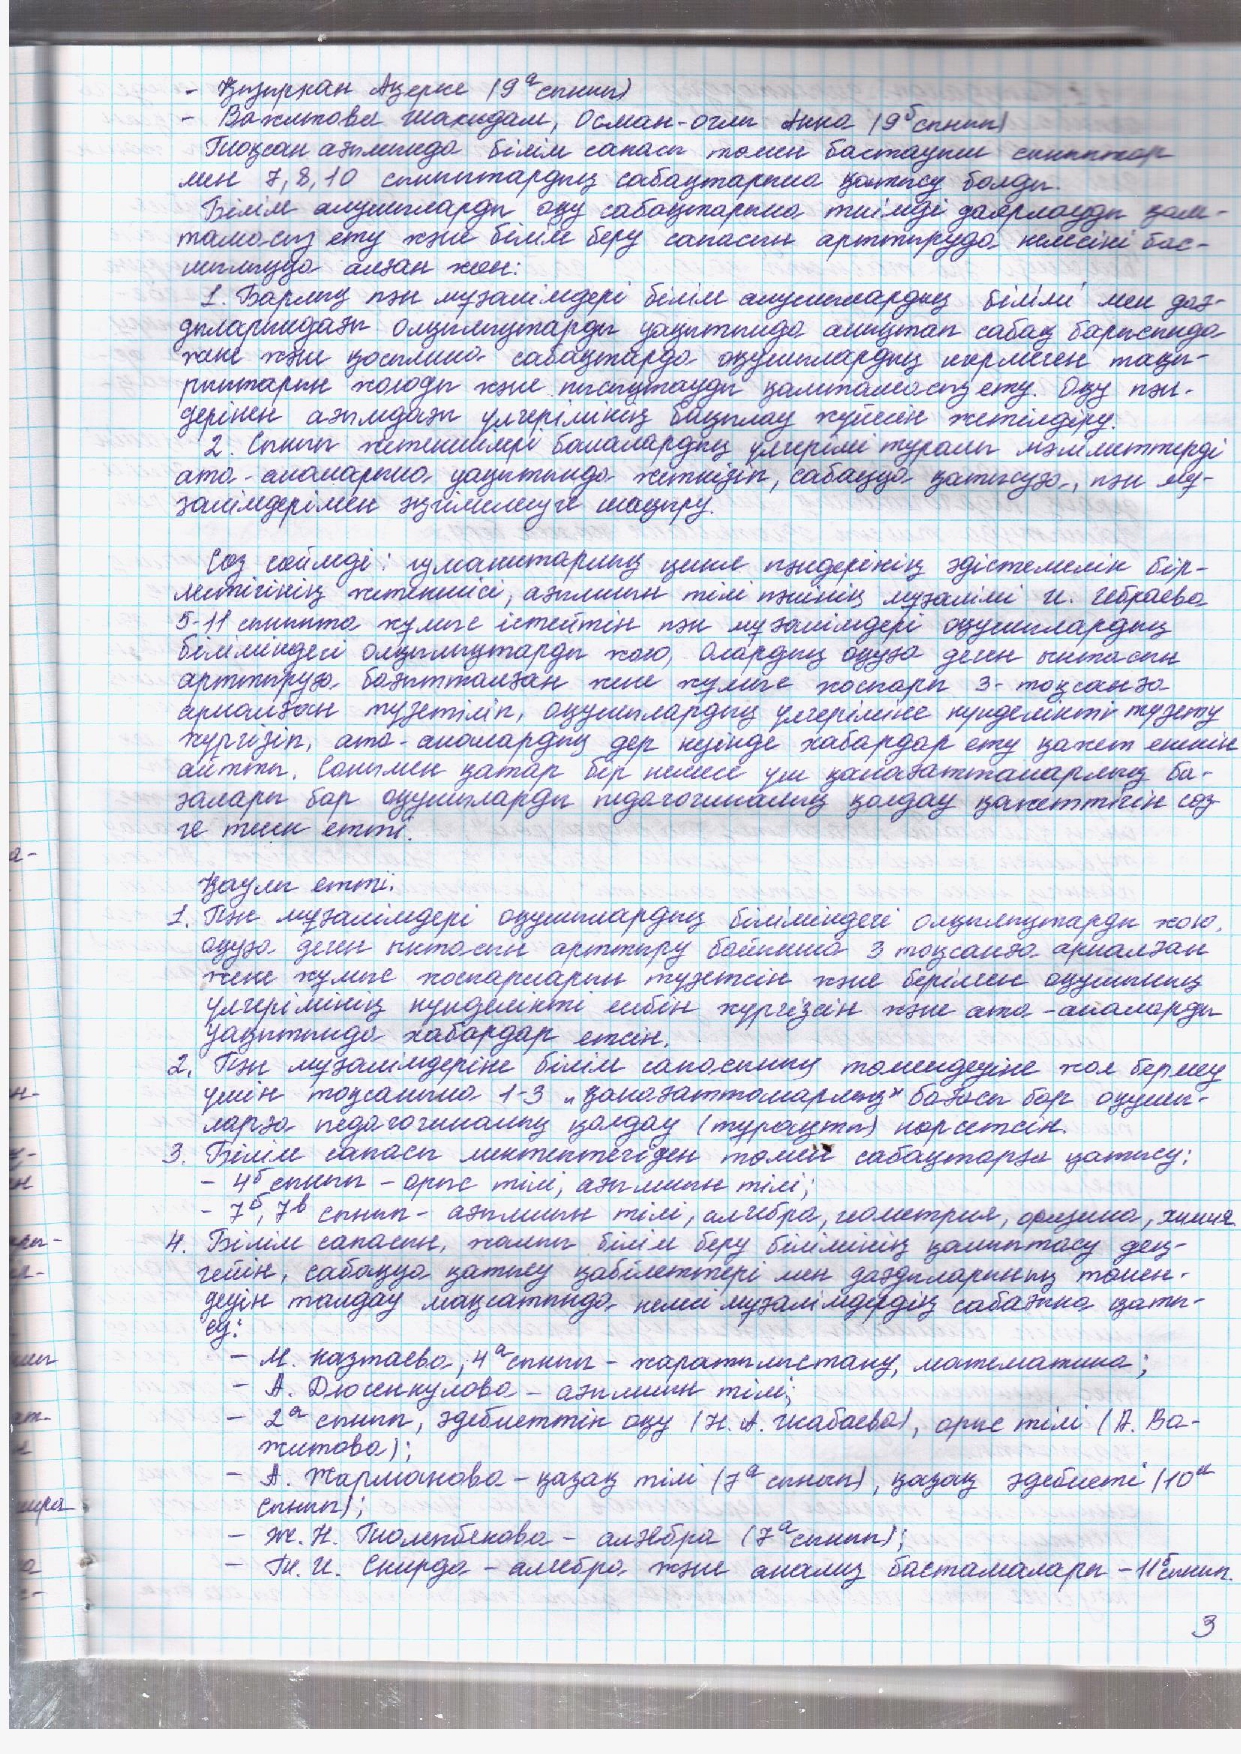 - Қызырхан Ақерке (9ᵃ сынып)
- Важитова Шахидам, Осман-оглы Анна (9ᵇ сынып)
Тоқсан ағымында білім сапасы төмен бастауыш сыныптар
мен 7, 8, 10 сыныптардың сабақтарына қатысу болды.
Білім алушыларды оқу сабақтарына тиімді даярлауды қам-
тамасыз ету және білім беру сапасын арттыруда келесіні бас-
шылыққа алған жөн:
1. Барлық пән мұғалімдері білім алушылардың білімі мен дағ-
дыларындағы олқылықтарды уақытында анықтап сабақ барысында
және қосымша сабақтарда оқушылардың игермеген тақы-
рыптарын жоюды және пысықтауды қамтамасыз ету. Оқу пән-
дерінен ағымдағы үлгерімнің бақылау жүйесін жетілдіру.
2. Сынып жетекшілері балалардың үлгерімі туралы мәліметтерді
ата-аналарына уақытында жеткізіп, сабаққа қатысуға, пән мұ-
ғалімдерімен әңгімелесуге шақыру.
Сөз сөйледі: гуманитарлық цикл пәндерінің әдістемелік бір-
лестігінің жетекшісі, ағылшын тілі пәнінің мұғалімі И. Гебраева
5-11 сыныпта жұмыс істейтін пән мұғалімдері оқушылардың
біліміндегі олқылықтарды жою, олардың оқуға деген ынтасын
арттыруға бағытталған жеке жұмыс жоспары 3-тоқсанға
арналған түзетіліп, оқушылардың үлгеріміне күнделікті түзету
жүргізіп, ата-аналардың дер кезінде хабардар ету қажет екенін
айтты. Сонымен қатар бір немесе үш қанағаттанарлық ба-
ғалары бар оқушыларды педагогикалық қолдау қажеттігін сөз-
ге тиек етті.
Қаулы етті:
1. Пән мұғалімдері оқушылардың біліміндегі олқылықтарды жою,
оқуға деген ынтасын арттыру бойынша 3 тоқсанға арналған
жеке жұмыс жоспарларын түзетсін және берілген оқушының
үлгерімінің күнделікті есебін жүргізсін және ата-аналарды
уақытында хабардар етсін.
2. Пән мұғалімдеріне білім сапасының төмендеуіне жол бермеу
үшін тоқсанына 1-3 "қанағаттанарлық" бағасы бар оқушы-
ларға педагогикалық қолдау (тұрақты) көрсетсін.
3. Білім сапасы мектептегіден төмен сабақтарға қатысу:
- 4ᵇ сынып - орыс тілі, ағылшын тілі;
- 7ᵇ, 7ᵛ сынып - ағылшын тілі, алгебра, геометрия, физика, химия
4. Білім сапасын, жалпы білім беру білімінің қалыптасу дең-
гейін, сабаққа қатысу қабілеттері мен дағдыларының төмен-
деуін талдау мақсатында келесі мұғалімдердің сабағына қаты-
су:
- М. Казтаева, 4ᵃ сынып - жаратылыстану, математика;
- А. Дюсенкулова - ағылшын тілі;
- 2ᵃ сынып, әдебиеттік оқу (Н. А. Шабаева), орыс тілі (А. Ва-
житова);
- А. Жарманова - қазақ тілі (7ᵃ сынып), қазақ әдебиеті (10ᵃ
сынып);
- Ж. Н. Тюлепбекова - алгебра (7ᵃ сынып);
- Т. И. Скирда - алгебра және анализ бастамалары - 11ᵃ сынып.
3